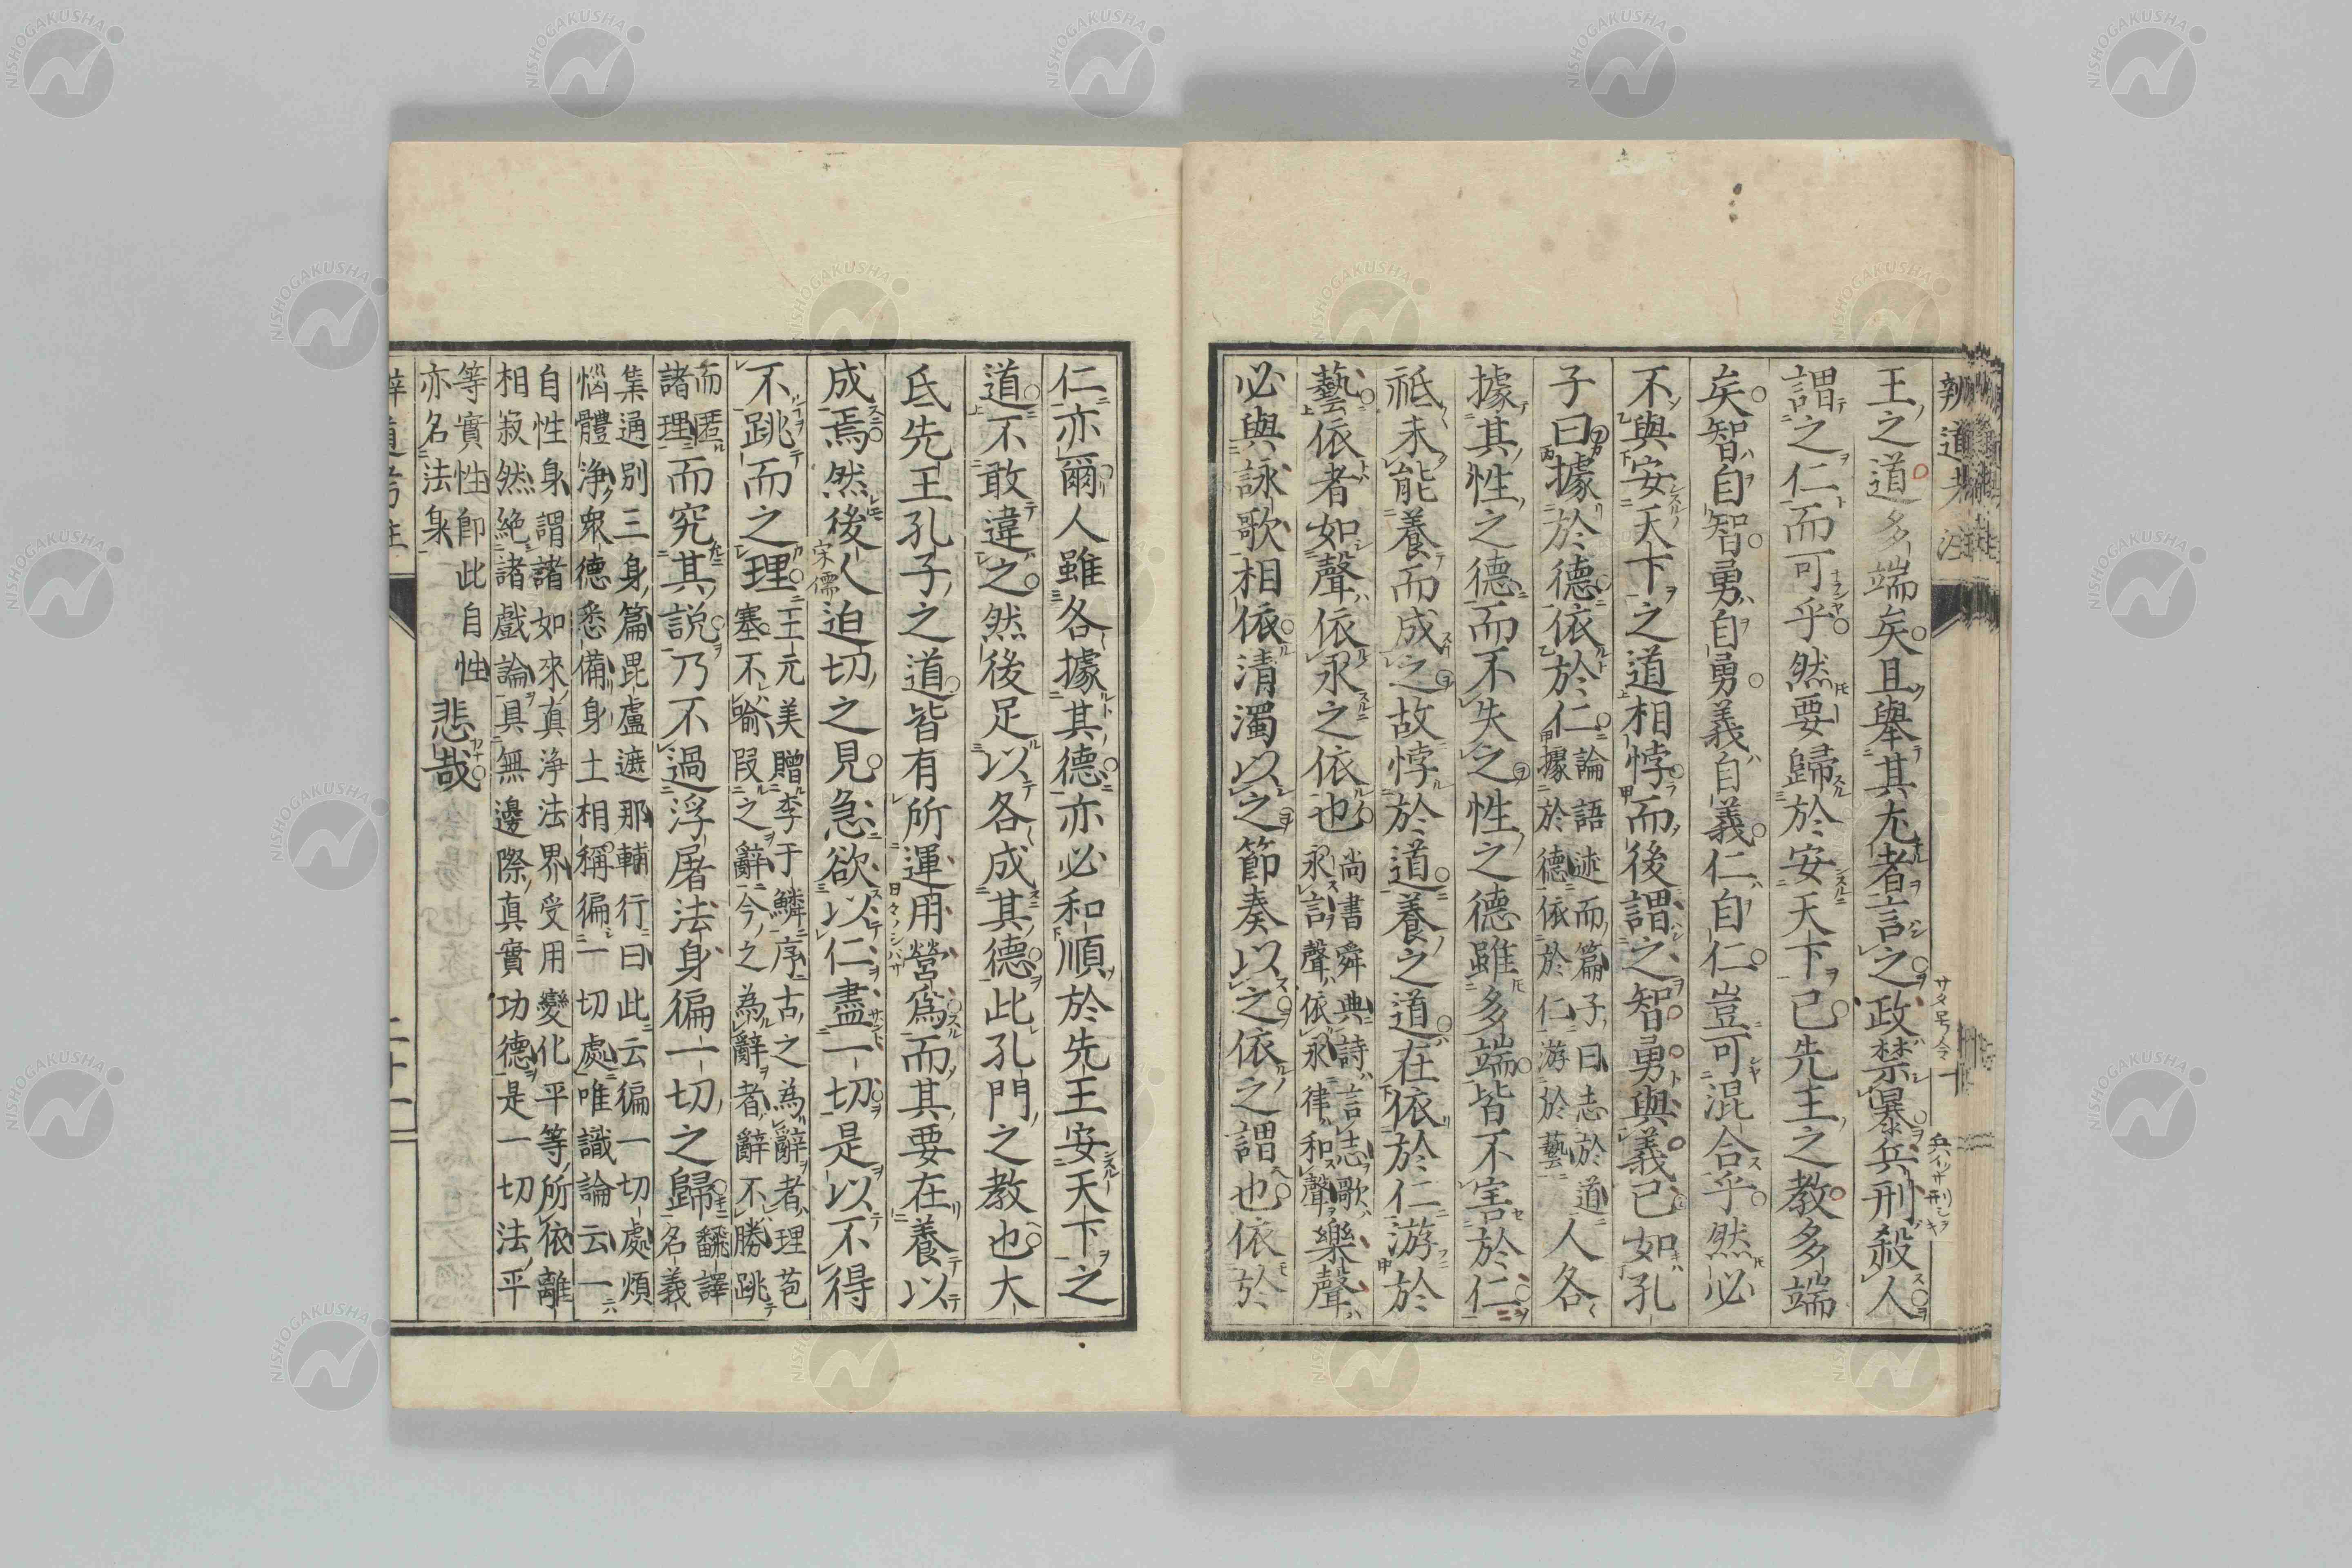 王之道多端矣且舉其尤者言之政禁暴兵刑殺人
謂之仁而可乎然要歸於安天下已先王之教多端
矣智自智勇自勇義自義仁自仁豈可混合乎然必
不與安天下之道相悖而後謂之智勇與義已如孔
子曰據於德依於仁
論語述而篇子曰志於道
據於德依於仁游於藝
人各
據其性之德而不失之性之德雖多端皆不害於仁
祗未能養而成之故悖於道養之道在依於仁游於
藝依者如聲依永之依也
尚書舜典詩言志歌
永言聲依永律和聲
樂聲
必與詠歌相依清濁以之節奏以之依之謂也依於
仁亦爾人雖各據其德亦必和順於先王安天下之
道不敢違之然後足以各成其德此孔門之教也大
氐先王孔子之道皆有所運用營爲而其要在養以
成焉然後人迫切之見急欲以仁盡一切是以不得
宋儒
不跳而之理
王元美贈李于鱗序古之為辭者理苞
塞不喻叚之辭今之為辭者辭不勝跳
而匿
諸理
而究其說乃不過浮屠法身徧一切之歸
翻譯
名義
集通別三身篇毘盧遮那輔行曰此云徧一切處煩
惱體淨衆德悉備身土相稱徧一切處唯識論云一
自性身謂諸如來真淨法界受用變化平等所依離
相寂然絶諸戲論具無邊際真實功德是一切法平
等實性卽此自性
亦名法身
悲哉
NISHOGAKUSHA